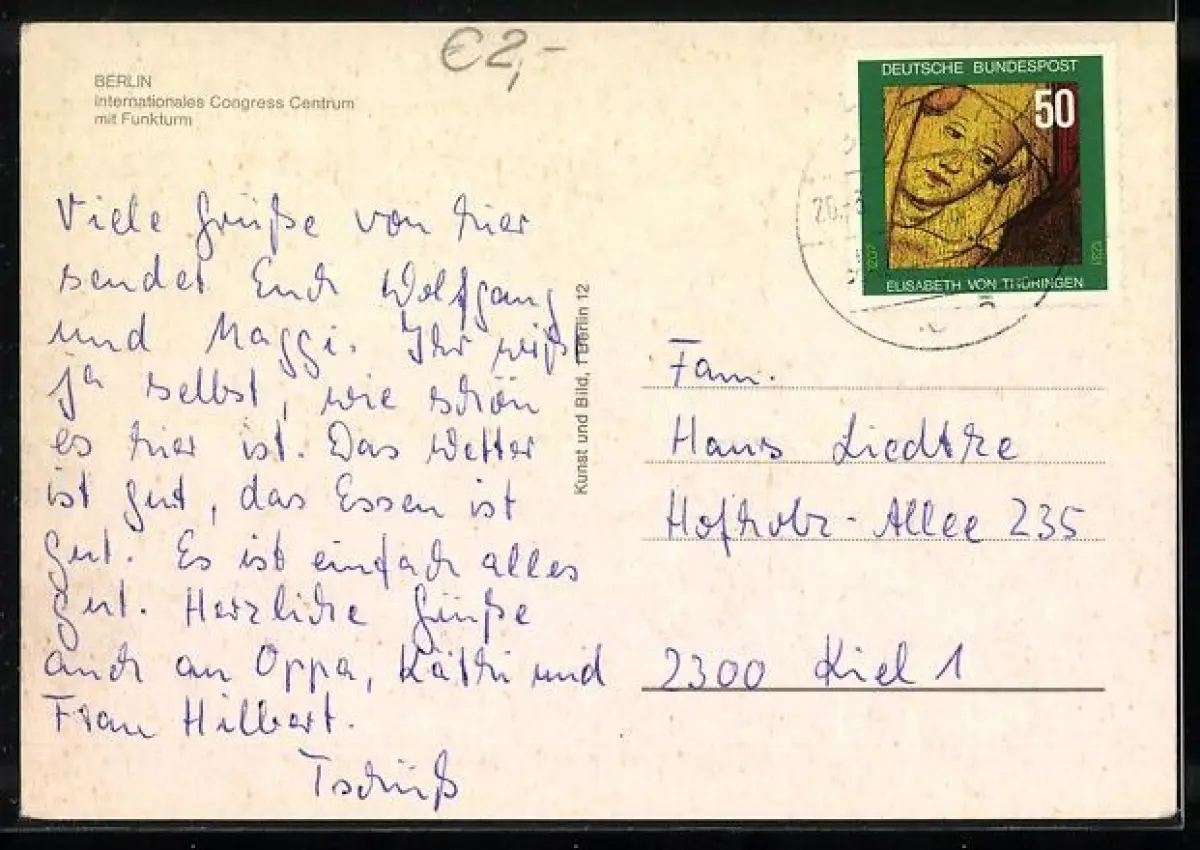 €2,-
BERLIN
Internationales Congress Centrum
mit Funkturm
DEUTSCHE BUNDESPOST
50
1207
1231
ELISABETH VON THÜRINGEN
20.
Viele Grüße von hier
sendet Euch Wolfgang
und Maggi. Ihr wißt
ja selbst, wie schön
es hier ist. Das Wetter
ist gut, das Essen ist
gut. Es ist einfach alles
gut. Herzliche Grüße
auch an Oppa, Käthi und
Frau Hilbert.
Tschüß
Kunst und Bild, 1 Berlin 12
Fam.
Hans Liedtke
Hofholz-Allee 235
2300 Kiel 1